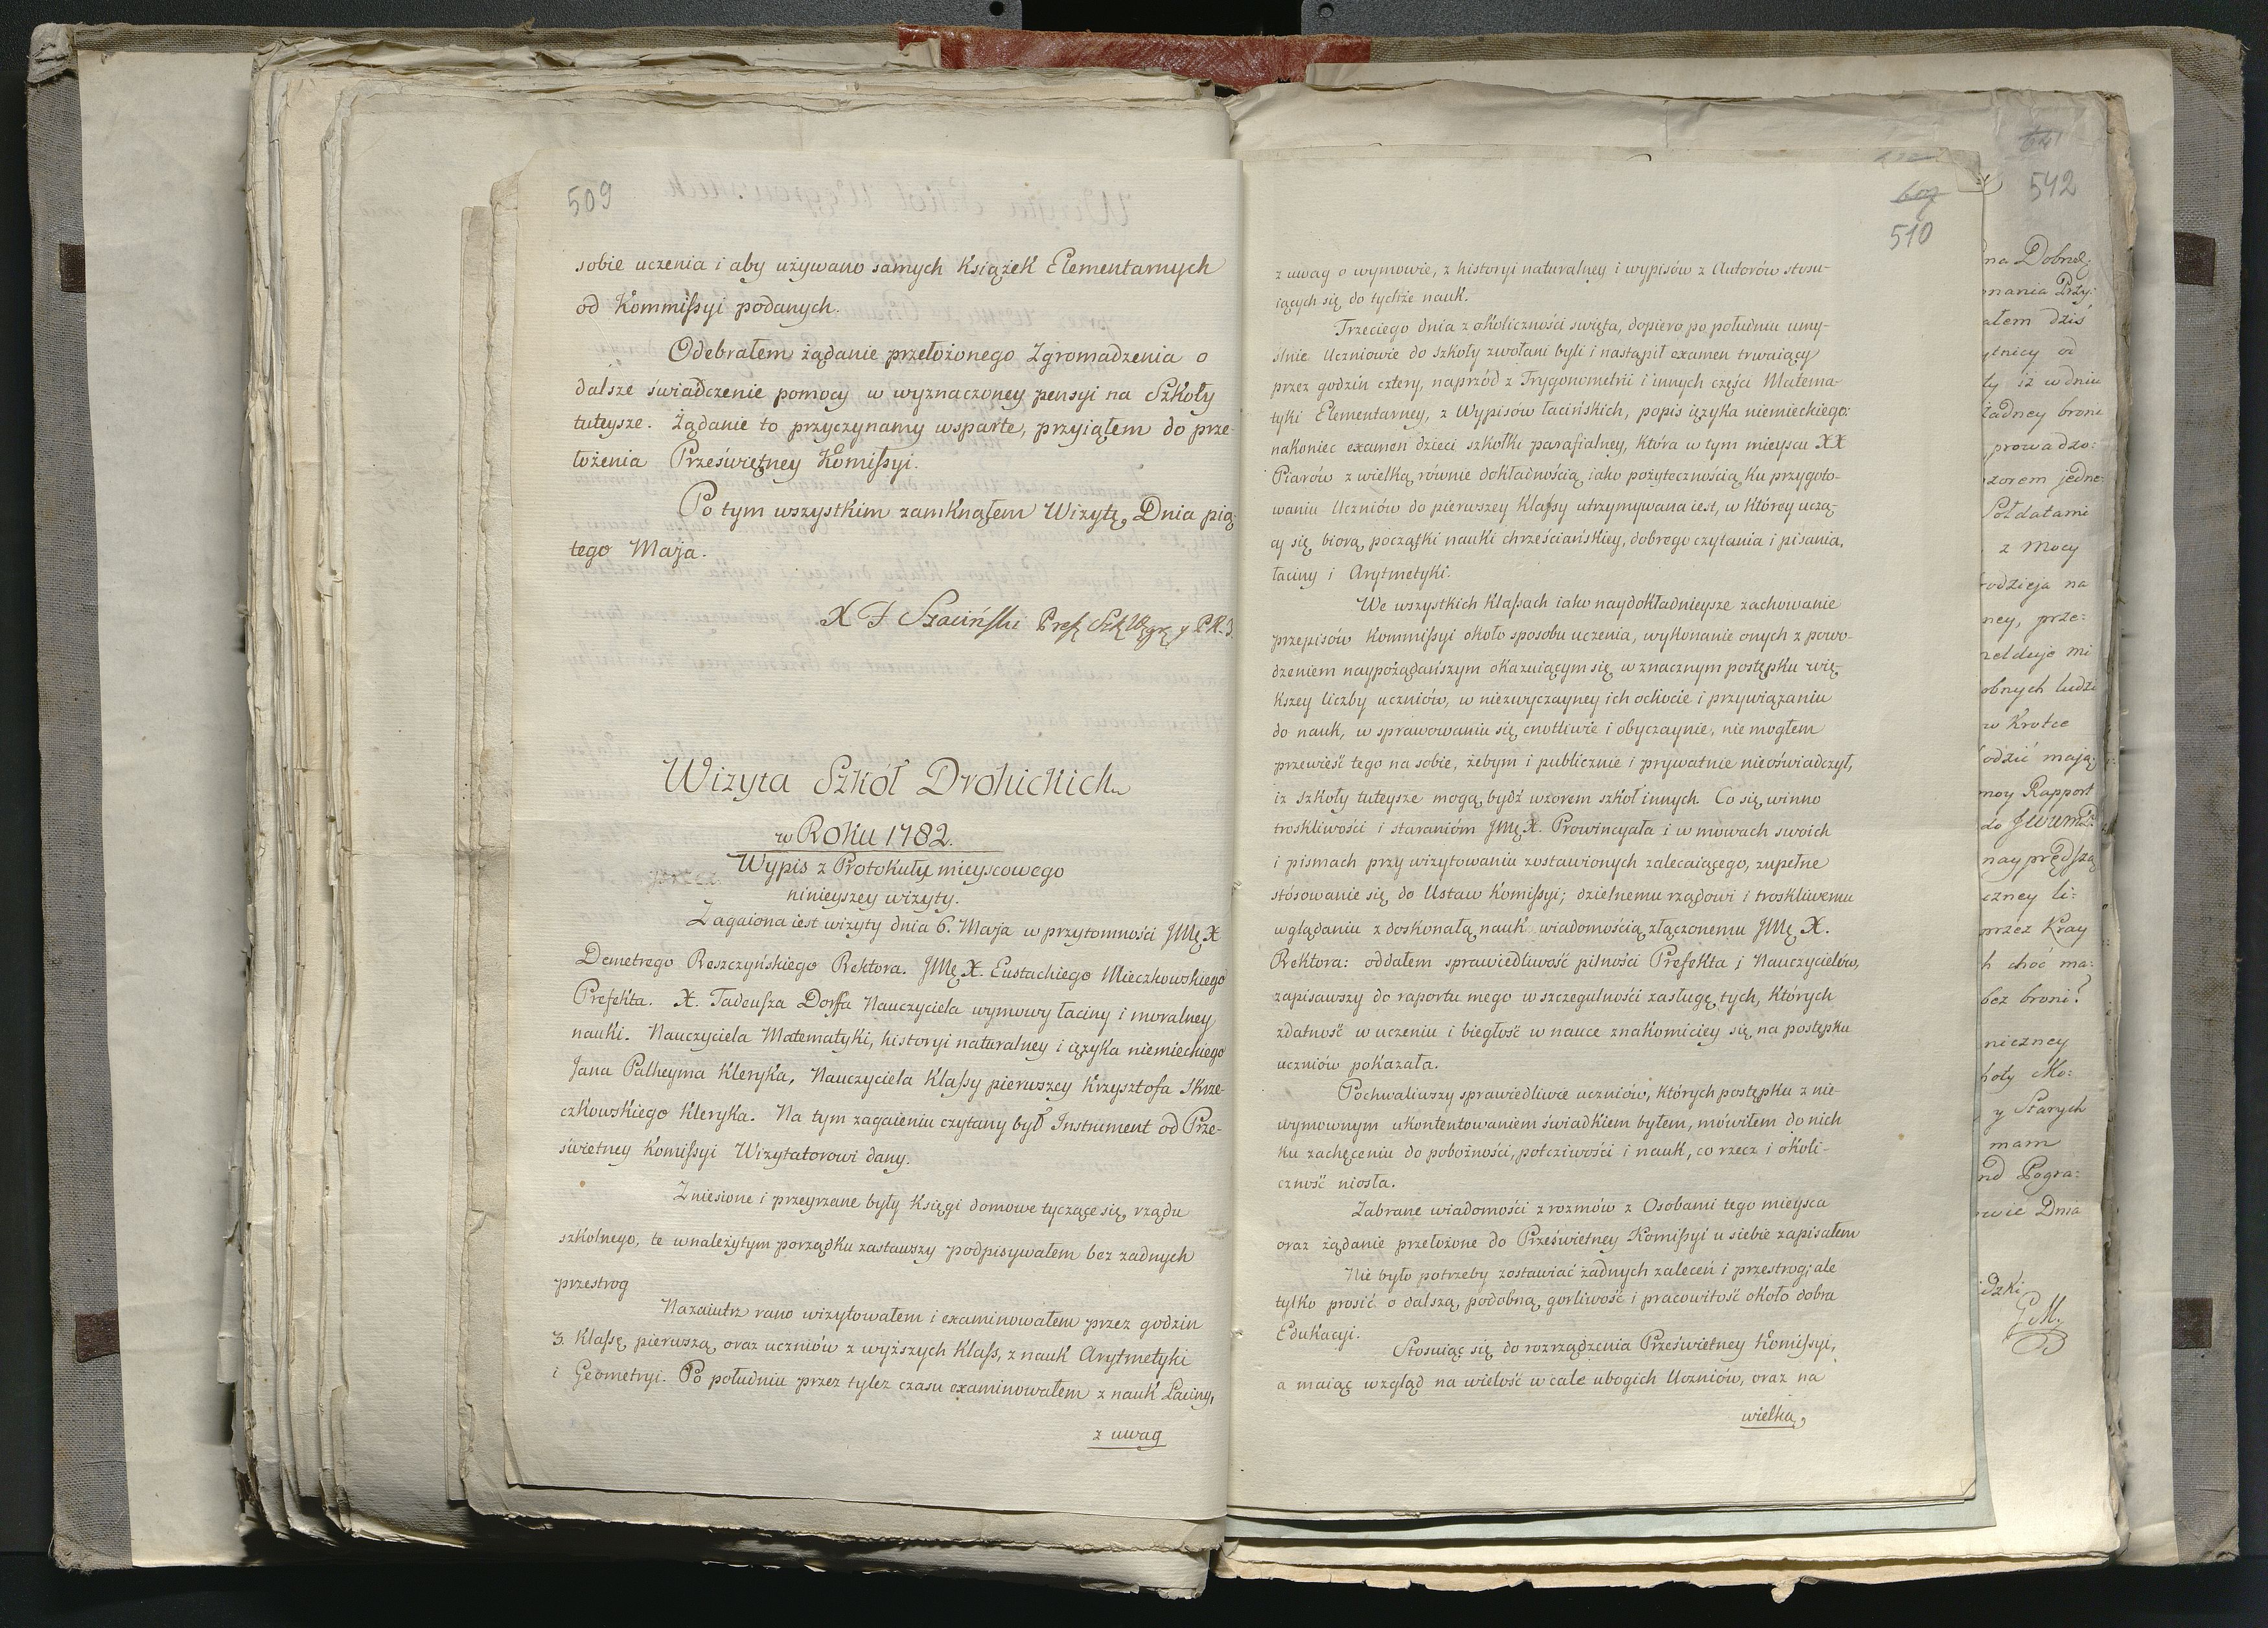 509
sobie uczenia i aby używano samych Książek Elementarnych
od Kommissyi podanych.
Odebrałem żądanie przełożonego Zgromadzenia o
dalsze swiadczenie pomocy w wyznaczoney pensyi na Szkoły
tuteysze. Żądanie to przyczynamy wsparte, przyiąłem do prze-
łożenia Przeświętney Komissyi.
Po tym wszystkim zamknąłem Wizytę, Dnia pią-
tego Maja.
X F Szaciński Pref. Szk.
Wizyta Szkół Drohickich
w Roku 1782.
Wypis z Protokułu mieyscowego
ninieyszey wizyty.
Zagaiona iest wizyty dnia 6. Maja w przytomności JMę X
Demetrego Reszczyńskiego Rektora. JMę X. Eustachiego Mieczkowskiego
Prefekta. X. Tadeusza Dorffa Nauczyciela wymowy łaciny i moralney
nauki. Nauczyciela Matematyki, historyi naturalney i ięzyka niemieckiego
Jana Palheyma Kleryka, Nauczyciela Klassy pierwszey Krzysztofa Skrze-
czkowskiego Kleryka. Na tym zagaieniu czytany był Instrument od Prze-
świetney Komissyi Wizytatorowi dany.
Zniesione i przeyrzane były Księgi domowe tyczące się rządu
szkolnego, te w należytym porządku zastawszy podpisywałem bez żadnych
przestrog
Nazaiutrz rano wizytowałem i examinowałem przez godzin
3. Klassę pierwszą, oraz uczniów z wyższych Klass, z nauk Arytmetyki
i Geometryi. Po południu przez tyleż czasu examinowałem z nauk Łaciny,
z uwag
607
510
z uwag o wymowie, z historyi naturalney i wypisów z Autorów stosu-
iących się do tychże nauk.
Trzeciego dnia z okoliczności swięta, dopiero po południu umy-
slnie Uczniowie do szkoły zwołani byli i nastąpił examen trwaiący
przez godzin cztery, naprzód z Trygonometrii i innych części Matema-
tyki Elementarney, z Wypisów łacińskich, popis ięzyka niemieckiego:
nakoniec examen dzieci szkołki parafialney, która w tym mieyscu XX
Piarów z wielką równie dokładnością iako pożytecznością ku przygoto-
waniu Uczniów do pierwszey Klassy utrzymywana iest, w którey uczą-
cy się biorą początki nauki chrześciańskiey, dobrego czytania i pisania,
łaciny i Arytmetyki.
We wszystkich Klassach iako naydokładnieysze zachowanie
przepisów Kommissyi około sposobu uczenia, wykonanie onych z powo-
dzeniem naypożądańszym okazuiącym się w znacznym postępku wię-
kszey liczby uczniów, w niezwyczayney ich ochocie i przywiązaniu
do nauk, w sprawowaniu się cnotliwie i obyczaynie, nie mogłem
przewieść tego na sobie, żebym i publicznie i prywatnie nieoświadczył,
iż szkoły tuteysze mogą bydź wzorem szkół innych. Co się winno
troskliwości i staranióm JMę X. Prowincyała i w mowach swoich
i pismach przy wizytowaniu zostawionych zalecaiącego, zupełne
stósowanie się do Ustaw Komissyi; dzielnemu rządowi i troskliwemu
wglądaniu z doskonałą nauk wiadomością złączonemu JMę X.
Rektora: oddałem sprawiedliwość pilności Prefekta i Nauczycielów,
zapisawszy do raportu mego w szczegulności zasługę tych, których
zdatność w uczeniu i biegłość w nauce znakomiciey się na postępku
uczniów pokazała.
Pochwaliwszy sprawiedliwie uczniów, których postępku z nie-
wymownym ukontentowaniem świadkiem byłem, mówiłem do nich
ku zachęceniu do pobożności, poczciwości i nauk, co rzecz i okoli-
czność niosła.
Zabrane wiadomości z rozmów z Osobami tego mieysca
oraz żądanie przełożone do Prześwietney Komissyi u siebie zapisałem
Nie było potrzeby zostawiać żadnych zaleceń i przestrog; ale
tylko prosić o dalszą podobną gorliwość i pracowitość około dobra
Edukacyi.
Stosuiąc się do rozrządzenia Prześwietney Komissyi,
a maiąc wzgląd na wielość w cale ubogich Uczniów, oraz na
wielką
542
na Dobrod:
nania Przy:
ałem dziś
ytnicy od
ły iż w dniu
żadney broni
prowadzo:
zorem jedne:
Soldatami
z Mocy
rodzieja na
ney, prze:
melduje mi
obnych ludzi
w Krotce
odzić mają
moy Rapport
do JWWMPa
nayprędszą
czney li:
przez Kray
h choć ma:
bez broni?
niczney
hoty Mo:
y Starych
mam
nd Pogra:
wie Dnia
idzki
GM.